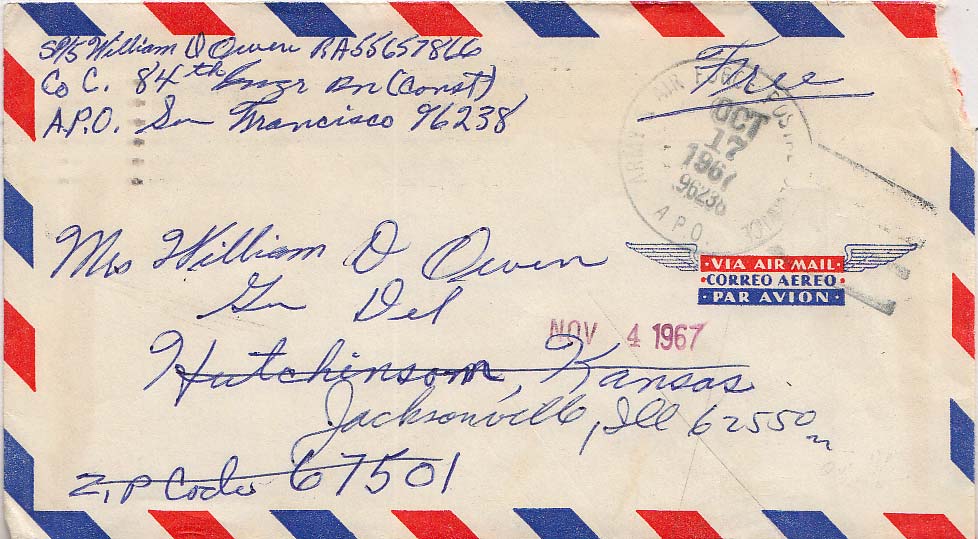 SP/5 William D Owen RA55657866
Co C. 84th Engr Bn (Const)
A.P.O. San Francisco 96238
Free
ARMY AIR FORCE POSTAL
OCT
17
1967
96238
A.P.O.
VIA AIR MAIL
CORREO AEREO
PAR AVION
Mrs William D Owen
Gen Del
NOV 4 1967
Hutchinson, Kansas
Jacksonville, Ill 62550
Zip Code 67501